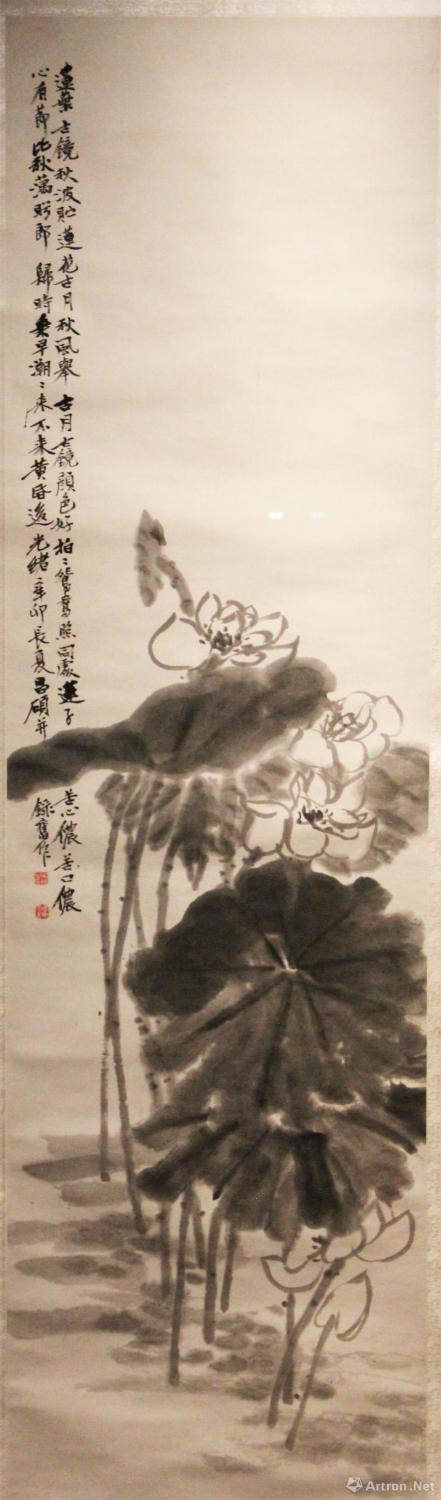 蓮葉古鏡秋波貯蓮花古月秋風舉古月古鏡顏色好拍拍鴛鴦照同處蓮子苦心儂苦口儂
心有節比秋藕盼郎歸時乘早潮潮來不來黃昏後光緒辛卯長夏昌碩并錄舊作
Artron.Net